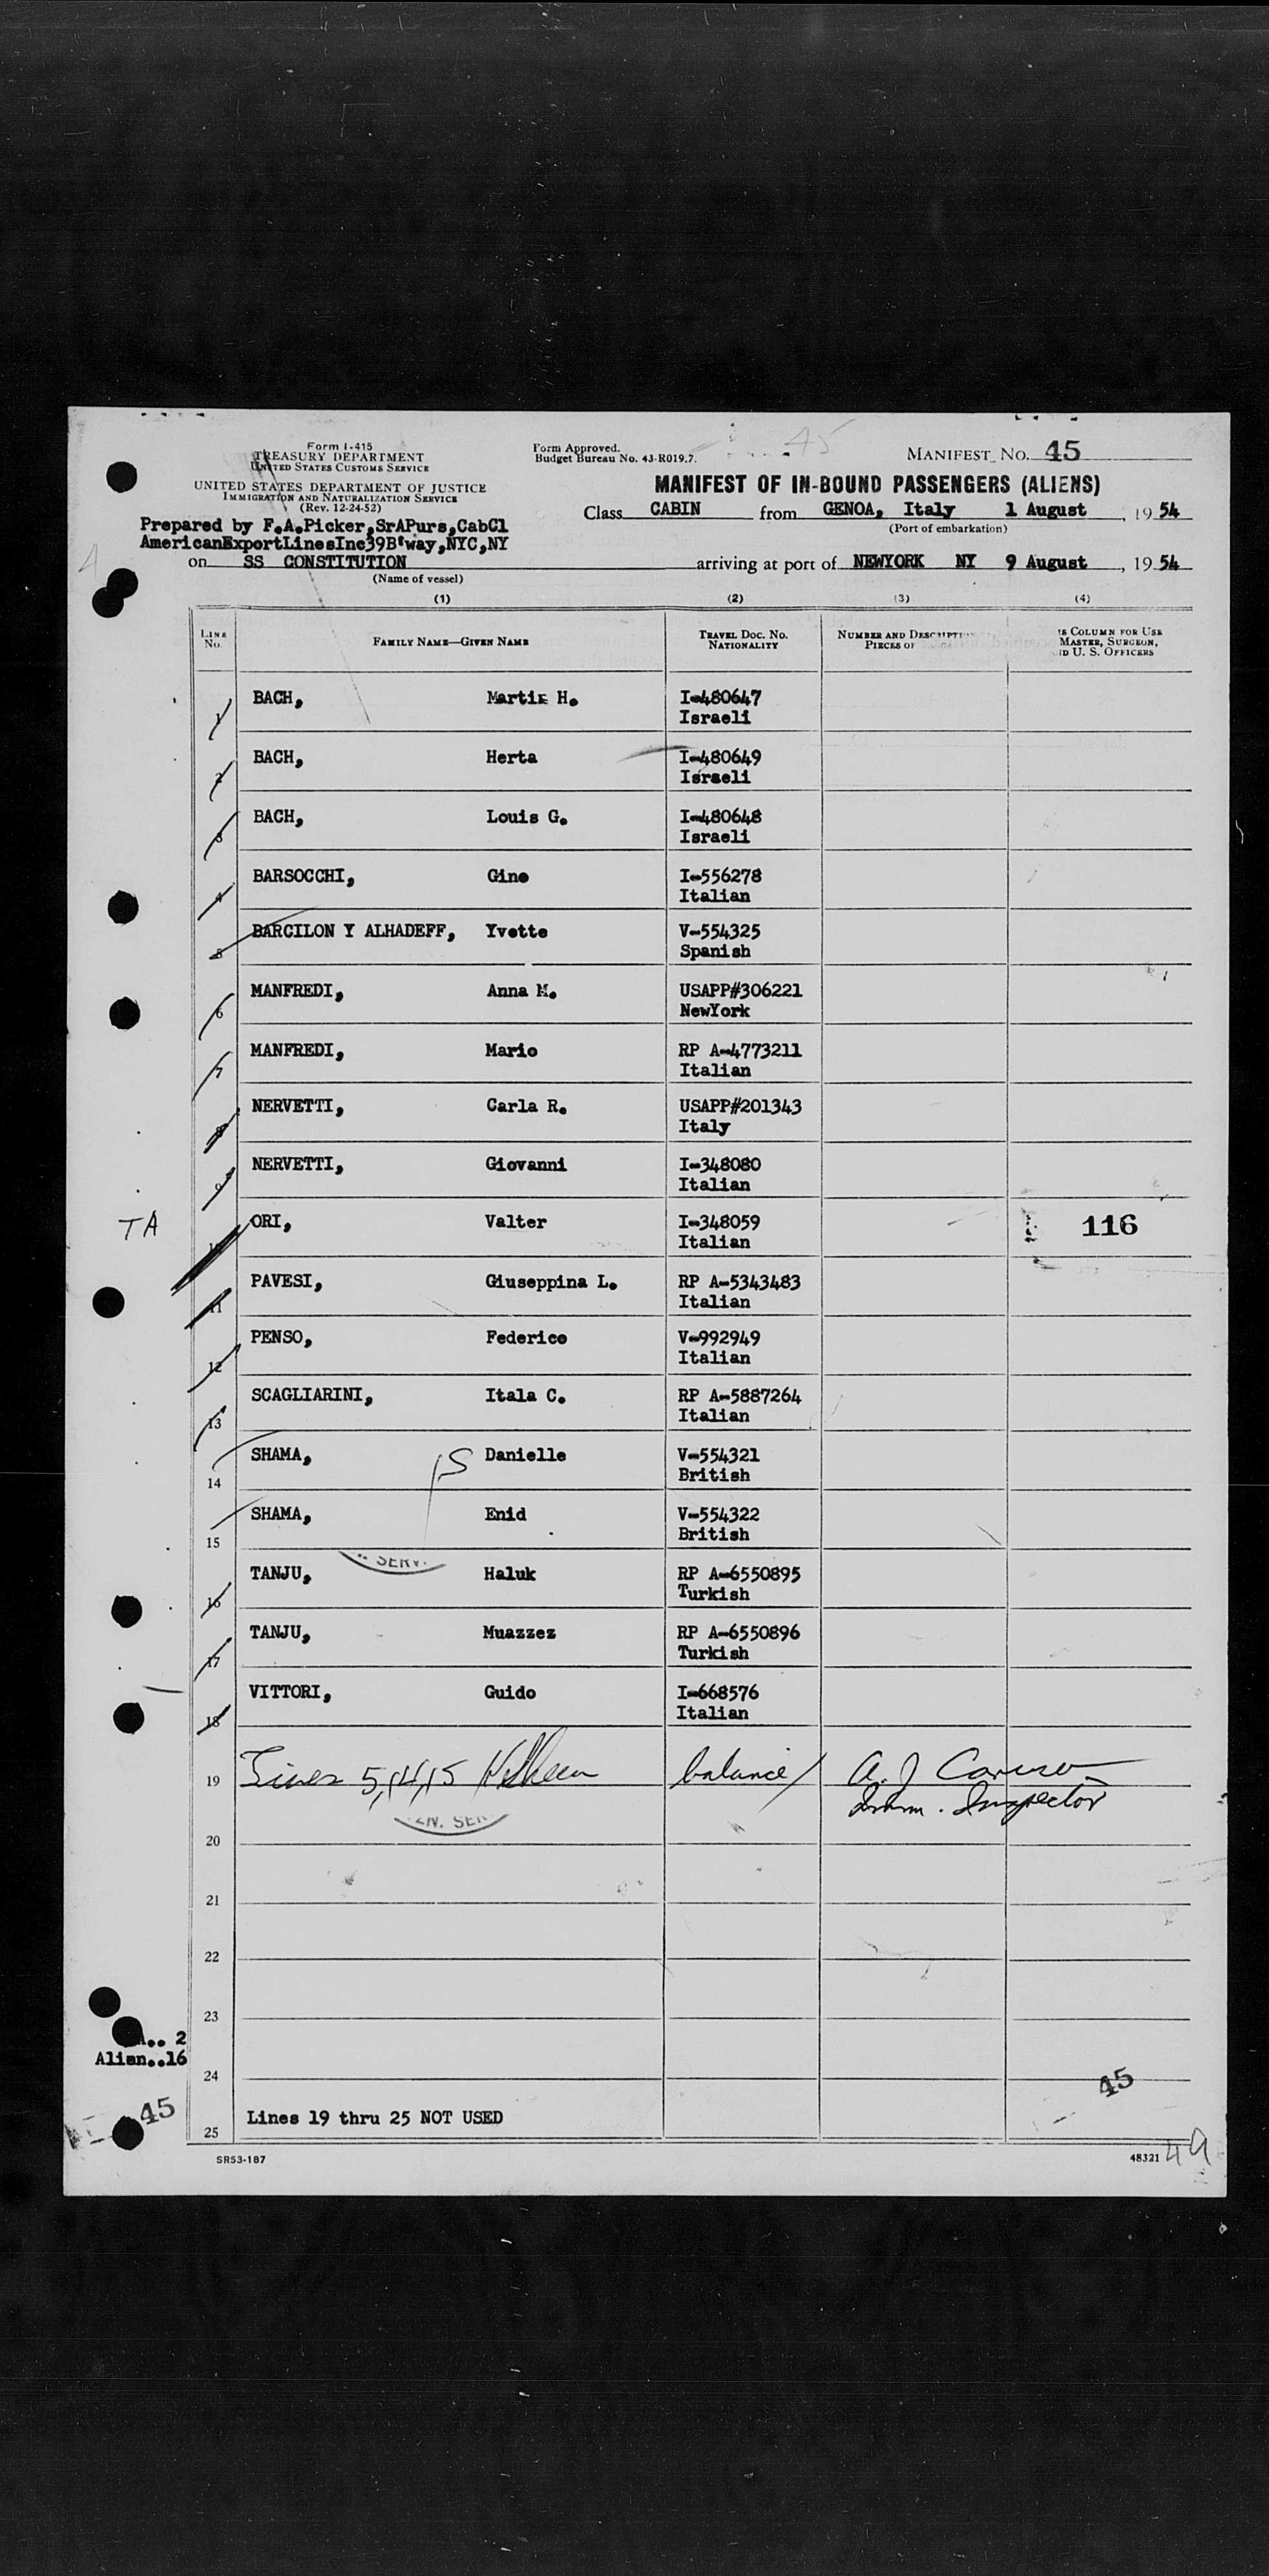 45
Form I-415
TREASURY DEPARTMENT
UNITED STATES CUSTOMS SERVICE
UNITED STATES DEPARTMENT OF JUSTICE
IMMIGRATION AND NATURALIZATION SERVICE
(Rev. 12-24-52)
Form Approved.
Budget Bureau No. 43-R019.7.
MANIFEST NO. 45
MANIFEST OF IN-BOUND PASSENGERS (ALIENS)
Class CABIN from GENOA, Italy 1 August, 1954
(Port of embarkation)
Prepared by F.A.Picker,SrAPurs,CabCl
AmericanExportLinesInc39B'way,NYC,NY
on SS CONSTITUTION arriving at port of NEWYORK NY 9 August, 1954
(Name of vessel)
(1) (2) (3) (4)
LINE No. FAMILY NAME—GIVEN NAME TRAVEL DOC. NO. NATIONALITY NUMBER AND DESCRIPTI PIECES OF S COLUMN FOR USE MASTER, SURGEON, D U. S. OFFICERS
1 BACH, Martin H. I-480647
Israeli
2 BACH, Herta I-480649
Israeli
3 BACH, Louis G. I-480648
Israeli
4 BARSOCCHI, Gino I-556278
Italian
5 BARCILON Y ALHADEFF, Yvette V-554325
Spanish
6 MANFREDI, Anna M. USAPP#306221
NewYork
7 MANFREDI, Mario RP A-4773211
Italian
8 NERVETTI, Carla R. USAPP#201343
Italy
9 NERVETTI, Giovanni I-348080
Italian
TA 10 ORI, Valter I-348059 116
Italian
11 PAVESI, Giuseppina L. RP A-5343483
Italian
12 PENSO, Federico V-992949
Italian
13 SCAGLIARINI, Itala C. RP A-5887264
Italian
14 SHAMA, Danielle V-554321
British
15 SHAMA, Enid V-554322
British
SERV.
16 TANJU, Haluk RP A-6550895
Turkish
17 TANJU, Muazzez RP A-6550896
Turkish
18 VITTORI, Guido I-668576
Italian
19 Lines 5,14,15 balance/ A. J Caruso
Imm. Inspector
ZN. SER
20
21
22
23
.. 2
Alien..16
24
45
45
25 Lines 19 thru 25 NOT USED
SR53-187
48321
49